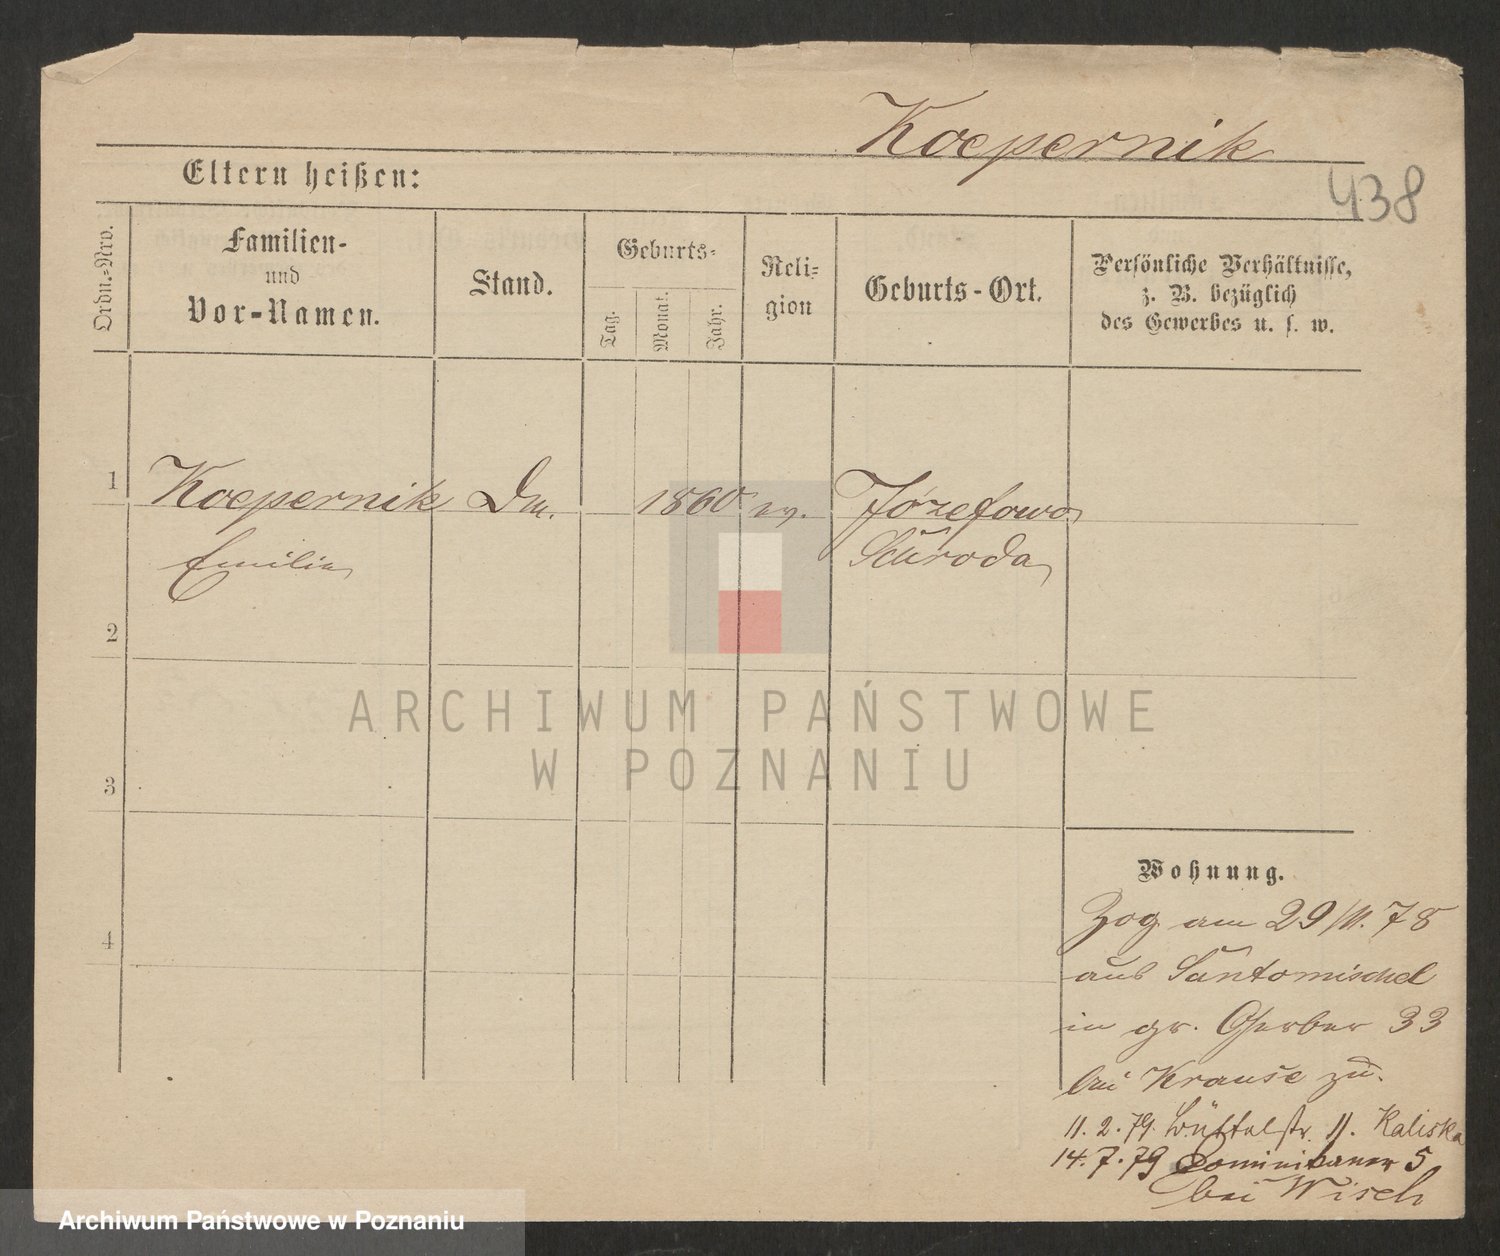 Koepernik
438
Eltern heißen:
Ordn.-Nro.
Familien-
und
Vor-Namen.
Stand.
Geburts-
Tag.
Monat.
Jahr.
Reli-
gion
Geburts-Ort.
Persönliche Verhältnisse,
z. B. bezüglich
des Gewerbes u. s. w.
1 Koepernik Dm. 1860 ev. Józefowo
Emilie Schroda
2
3
4
Wohnung.
Zog am 29/11. 78
aus Santomischel
in gr. Gerber 33
bei Krause zu.
11. 2. 79. Büttelstr. 11. Kaliska
14. 7. 79 Dominikaner 5
bei Wisch
ARCHIWUM PAŃSTWOWE
W POZNANIU
Archiwum Państwowe w Poznaniu